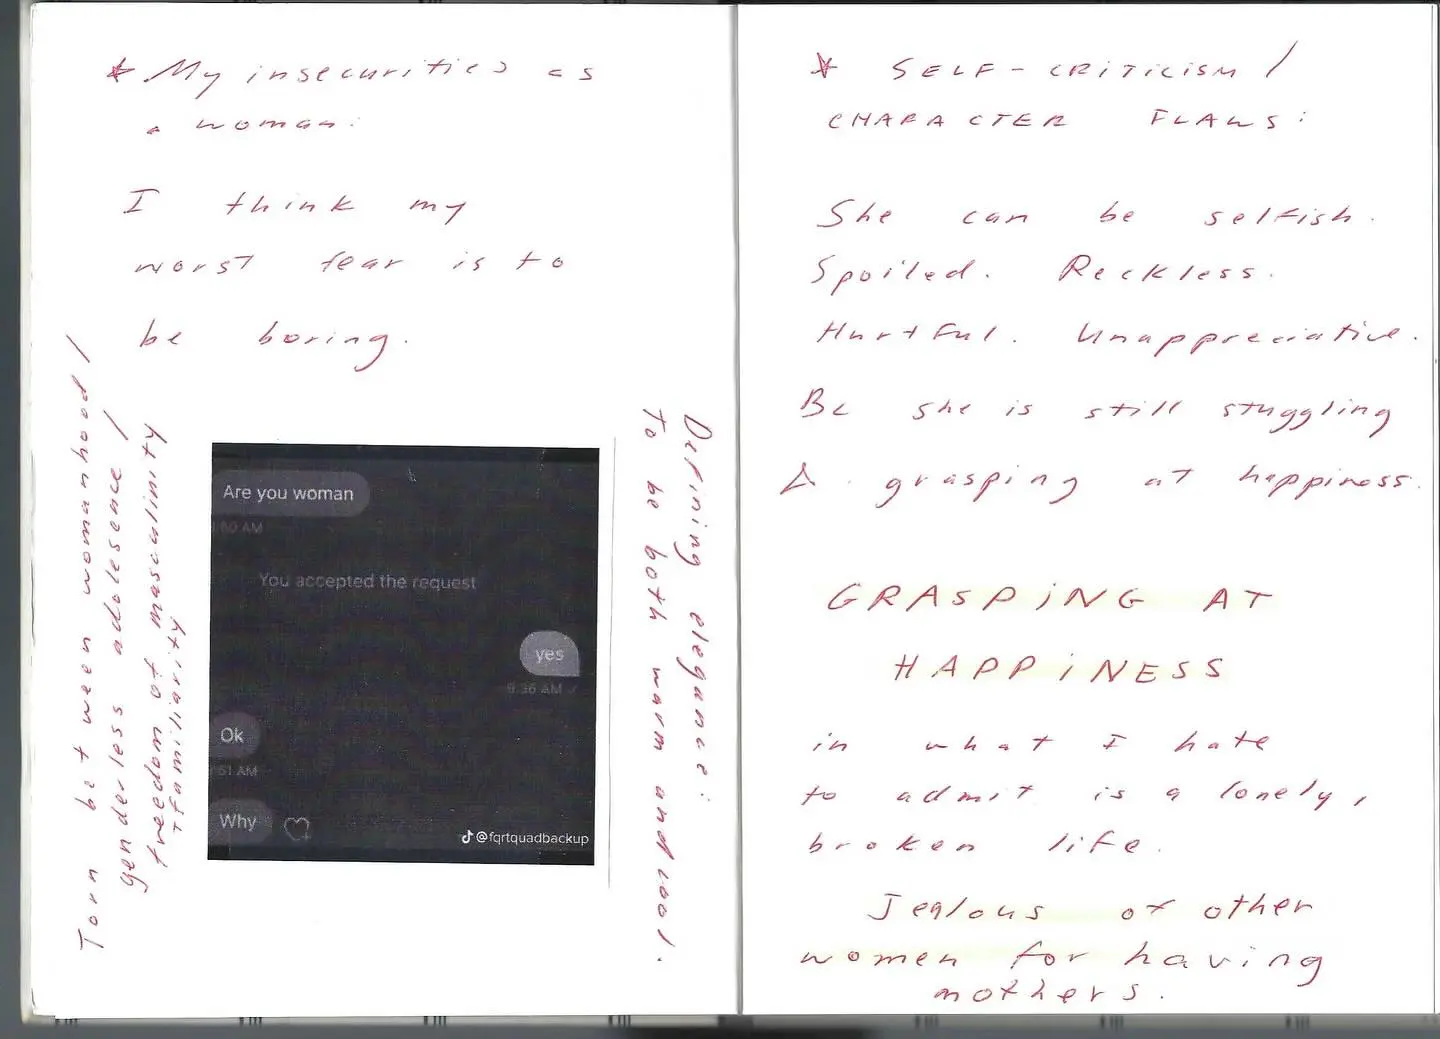 * My insecurities as
a woman:
I think my
worst fear is to
be boring.
Torn between womanhood /
genderless adolesence /
freedom of masculinity
+familiarity
Are you woman
:50 AM
You accepted the request
yes
9:36 AM ✓
Ok
:51 AM
Why
@fqrtquadbackup
Defining elegance:
To be both warm and cool.
* SELF-CRITICISM /
CHARACTER FLAWS:
She can be selfish.
Spoiled. Reckless.
Hurtful. Unappreciative.
Bc she is still stuggling
& grasping at happiness.
GRASPING AT
HAPPINESS
in what I hate
to admit is a lonely,
broken life.
Jealous of other
women for having
mothers.